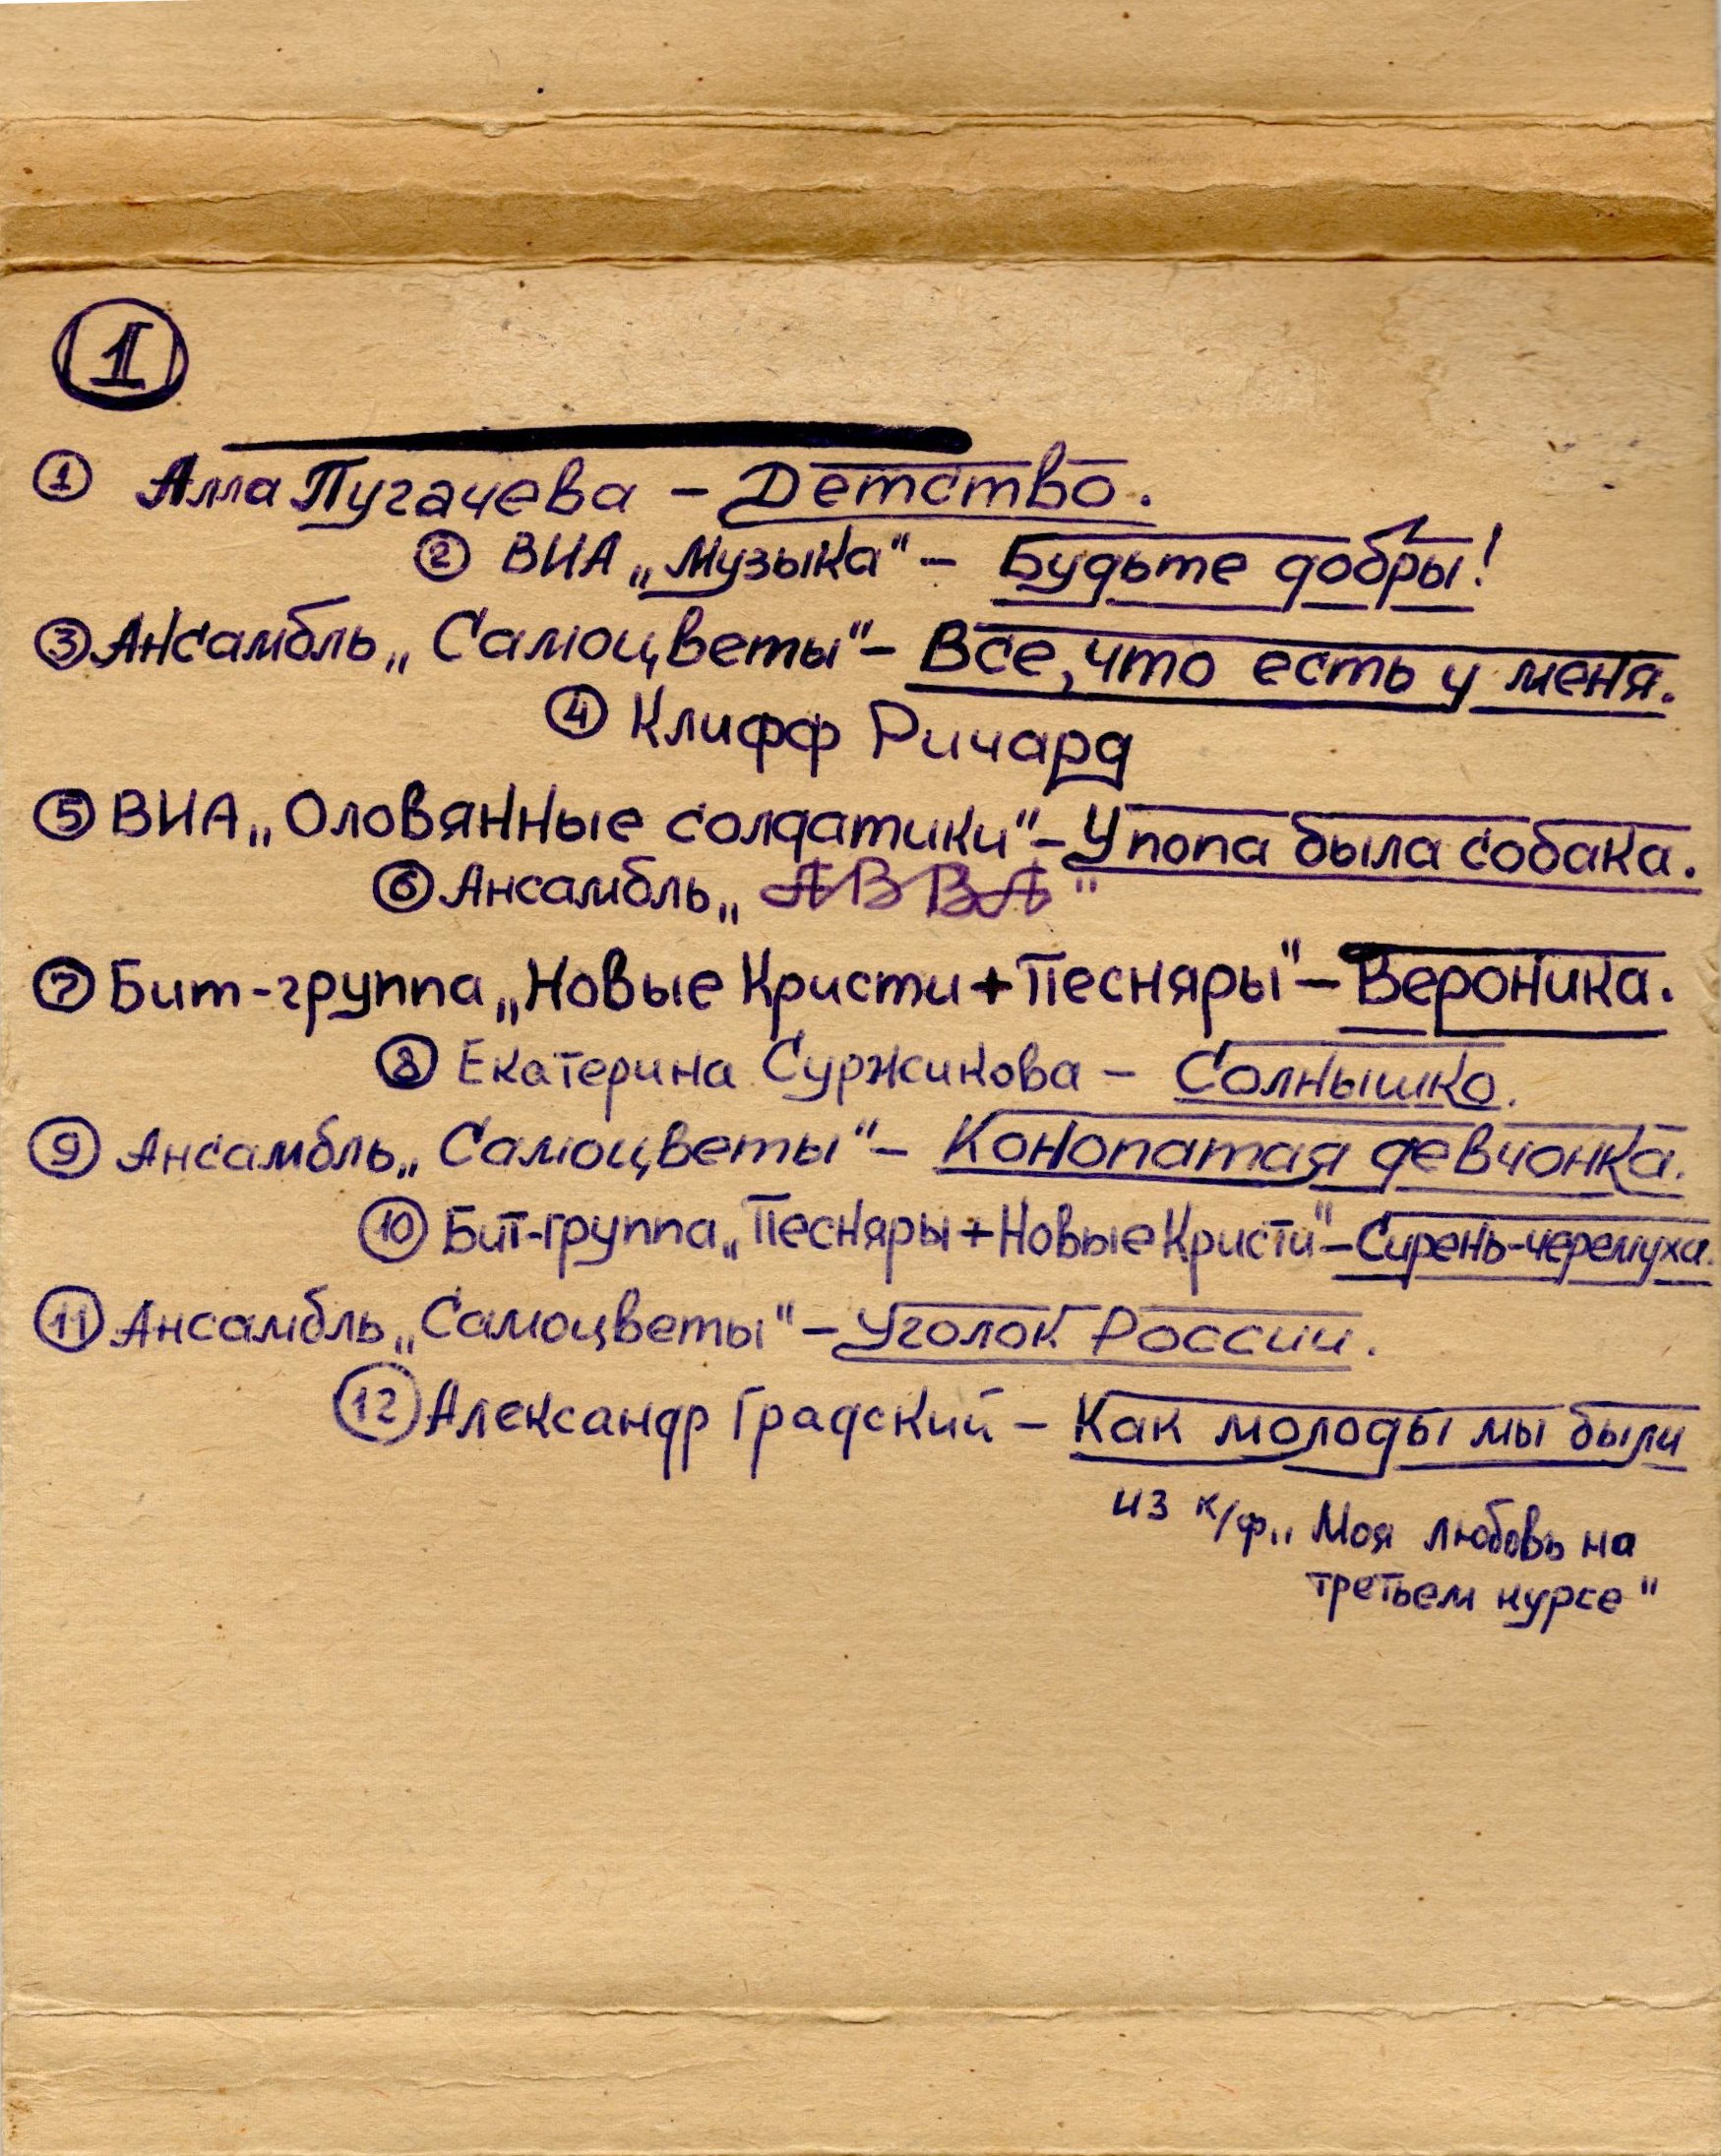 1
1 Алла Пугачева – Детство.
2 ВИА „Музыка" – Будьте добры!
3 Ансамбль „Самоцветы" – Все, что есть у меня.
4 Клифф Ричард
5 ВИА „Оловянные солдатики" – У попа была собака.
6 Ансамбль „ABBA"
7 Бит-группа „Новые Кристи + Песняры" – Вероника.
8 Екатерина Суржикова – Солнышко.
9 Ансамбль „Самоцветы" – Конопатая девчонка.
10 Бит-группа „Песняры + Новые Кристи" – Сирень-черемуха.
11 Ансамбль „Самоцветы" – Уголок России.
12 Александр Градский – Как молоды мы были
из к/ф „Моя любовь на
третьем курсе"